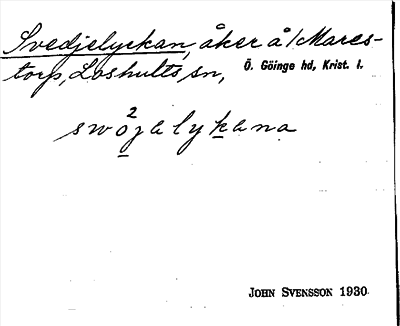 Svedjelyckan, åker å Mares-
torp, Loshults sn, Ö. Göinge hd, Krist. l.
2
swojalykana
JOHN SVENSSON 1930.